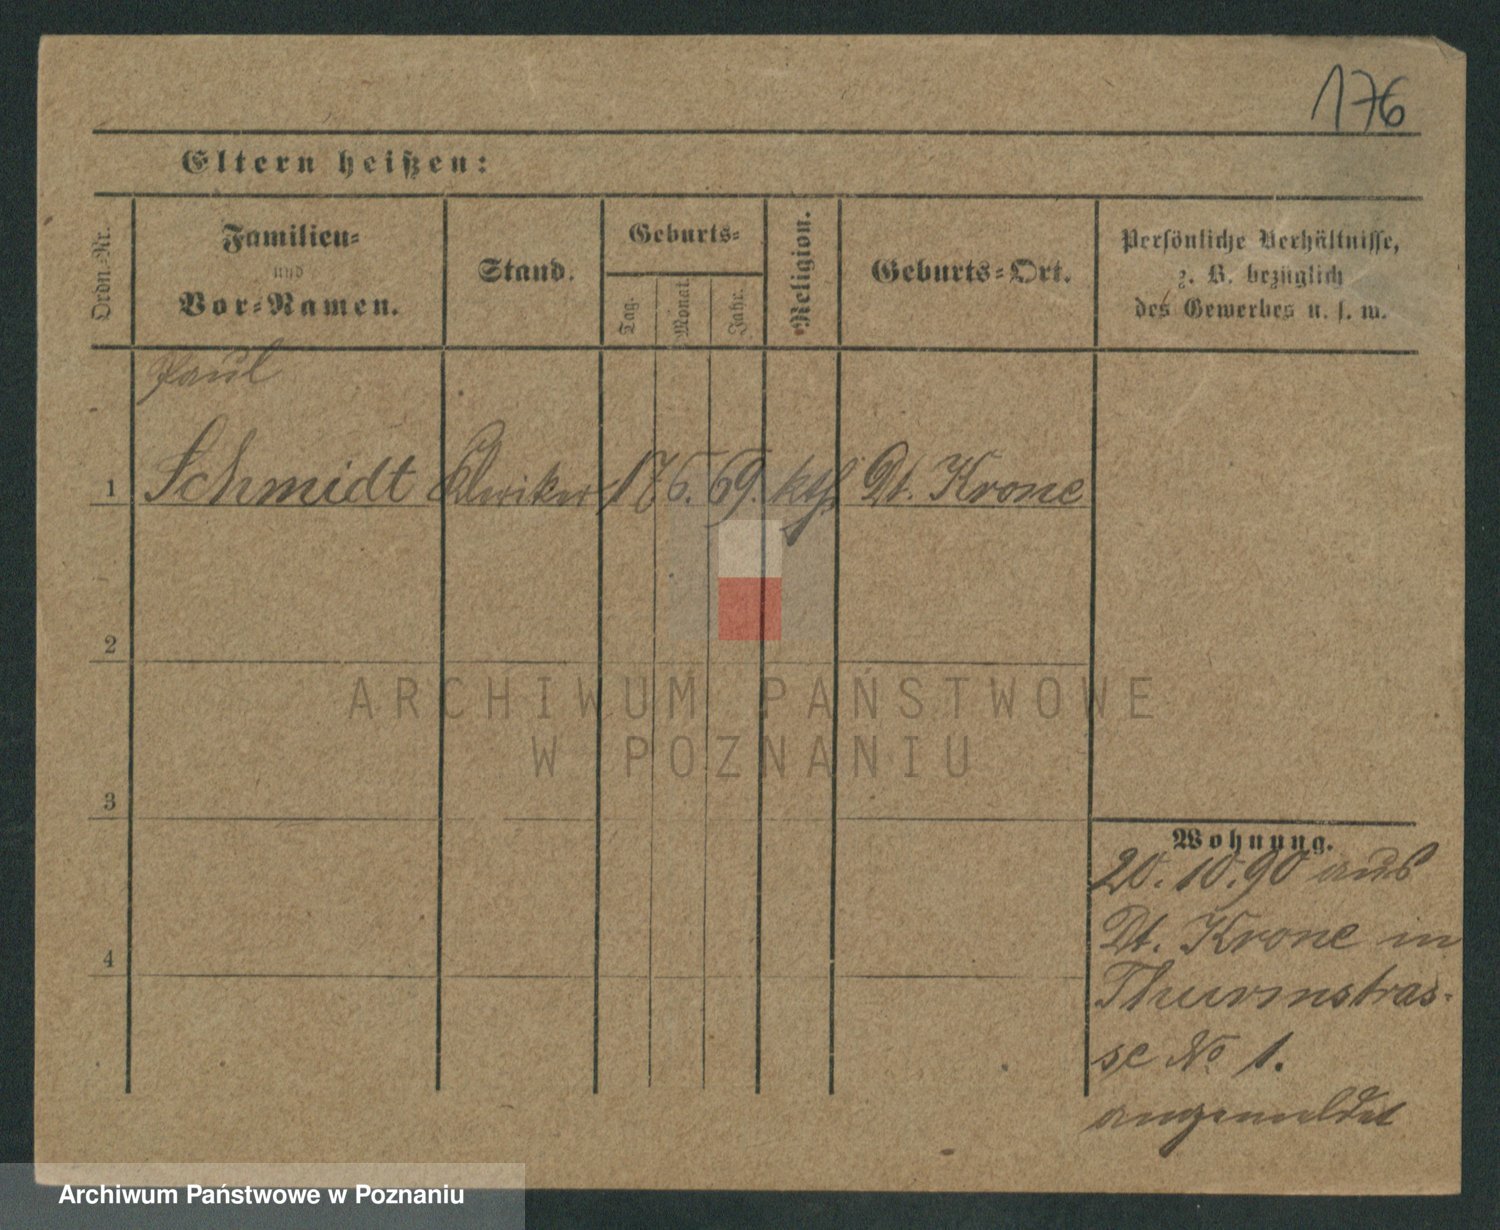 176
Eltern heißen:
Ordn.-Nr.
Familien-
und
Vor-Namen.
Stand.
Geburts-
Tag.
Monat.
Jahr.
Religion.
Geburts-Ort.
Persönliche Verhältnisse,
z. B. bezüglich
des Gewerbes u. s. w.
Paul
1 Schmidt Kleriker 17 6. 69. kth. Dt. Krone
2
3
4
Wohnung.
20. 10. 90 aus
Dt. Krone in
Thurmstras-
se No 1.
angemeldet
ARCHIWUM PAŃSTWOWE
W POZNANIU
Archiwum Państwowe w Poznaniu